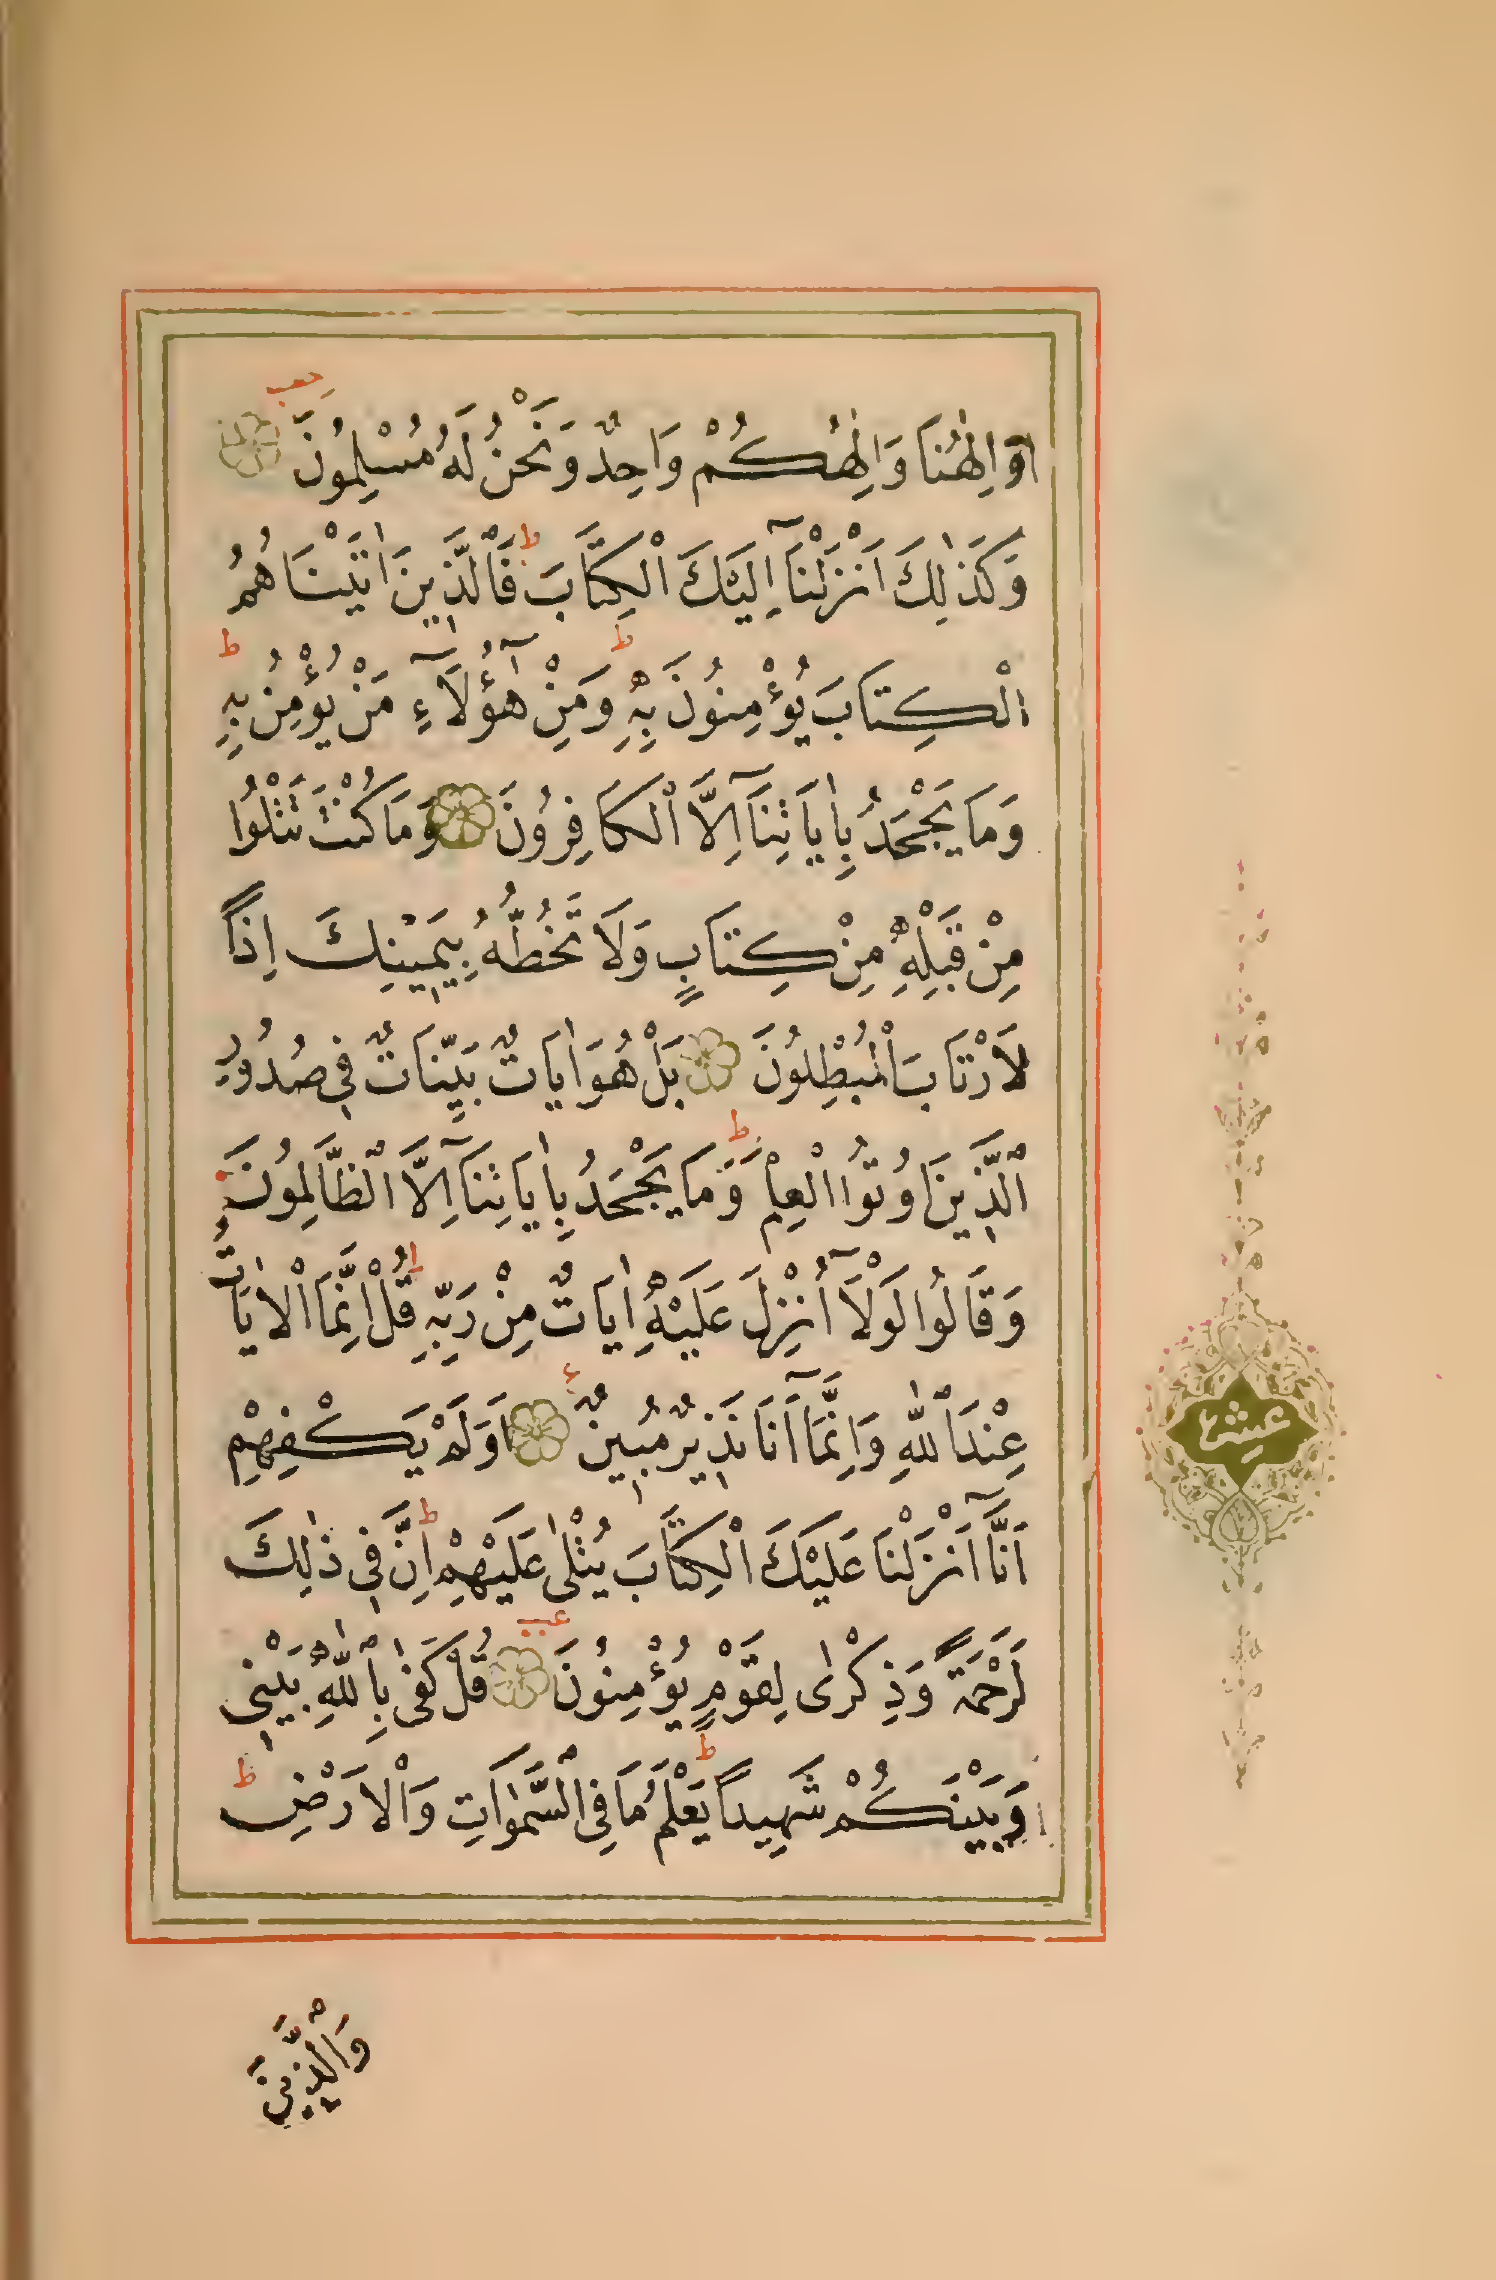 وَاِلٰهُنَا وَاِلٰهُكُمْ وَاحِدٌ وَنَحْنُ لَهُ مُسْلِمُونَ
وَكَذٰلِكَ اَنْزَلْنَٓا اِلَيْكَ الْكِتَابَ ط فَالَّذِينَ اٰتَيْنَاهُمُ
الْكِتَابَ يُؤْمِنُونَ بِهِ ط وَمِنْ هٰٓؤُلَٓاءِ مَنْ يُؤْمِنُ بِهِ ط
وَمَا يَجْحَدُ بِاٰيَاتِنَٓا اِلَّا الْكَافِرُونَ وَمَا كُنْتَ تَتْلُوا
مِنْ قَبْلِهِ مِنْ كِتَابٍ وَلَا تَخُطُّهُ بِيَمِينِكَ اِذًا
لَارْتَابَ الْمُبْطِلُونَ بَلْ هُوَ اٰيَاتٌ بَيِّنَاتٌ فِي صُدُورِ
الَّذِينَ اُوتُوا الْعِلْمَ ط وَمَا يَجْحَدُ بِاٰيَاتِنَٓا اِلَّا الظَّالِمُونَ
وَقَالُوا لَوْلَٓا اُنْزِلَ عَلَيْهِ اٰيَاتٌ مِنْ رَبِّهِ ط قُلْ اِنَّمَا الْاٰيَاتُ
عِنْدَ اللّٰهِ وَاِنَّمَٓا اَنَا نَذِيرٌ مُبِينٌ اَوَلَمْ يَكْفِهِمْ
اَنَّٓا اَنْزَلْنَا عَلَيْكَ الْكِتَابَ يُتْلٰى عَلَيْهِمْ ط اِنَّ فِي ذٰلِكَ
لَرَحْمَةً وَذِكْرٰى لِقَوْمٍ يُؤْمِنُونَ قُلْ كَفٰى بِاللّٰهِ بَيْنِي
وَبَيْنَكُمْ شَهِيدًا ط يَعْلَمُ مَا فِي السَّمٰوَاتِ وَالْاَرْضِ ط
وَالَّذِينَ